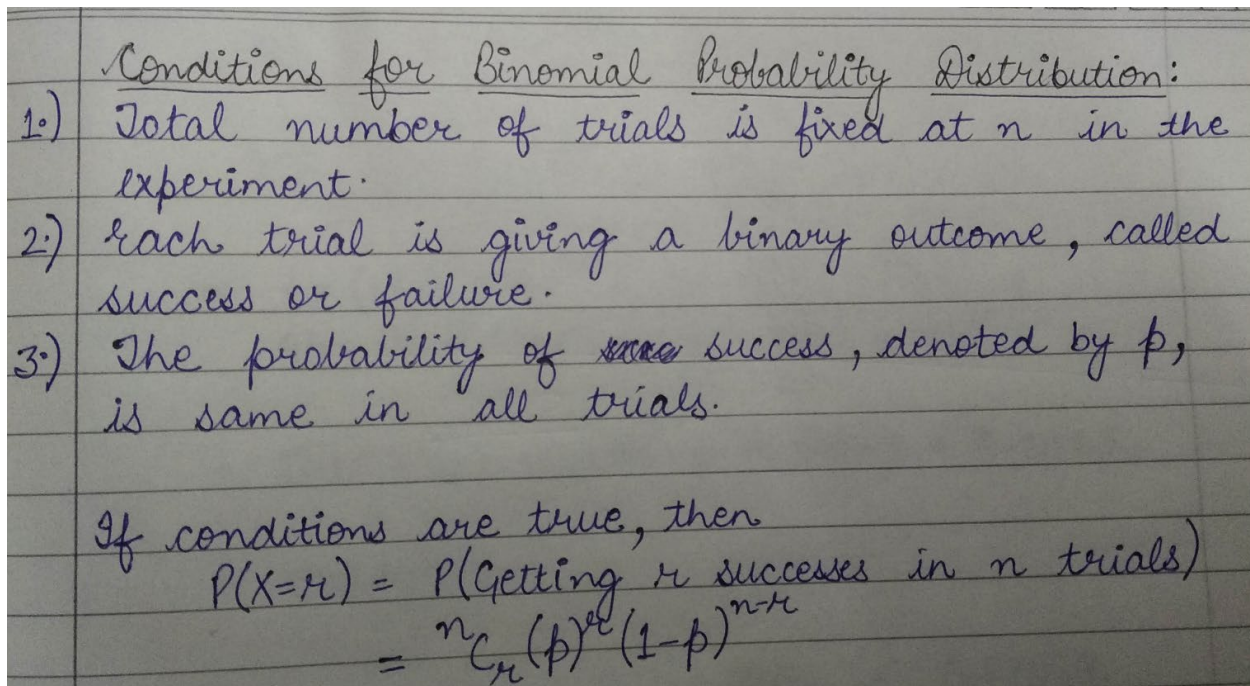 Conditions for Binomial Probability Distribution:
1.) Total number of trials is fixed at n in the
experiment.
2.) Each trial is giving a binary outcome, called
success or failure.
3.) The probability of success, denoted by p,
is same in all trials.
If conditions are true, then
P(X=r) = P(Getting r successes in n trials)
= ⁿCᵣ (p)ʳ (1-p)ⁿ⁻ʳ